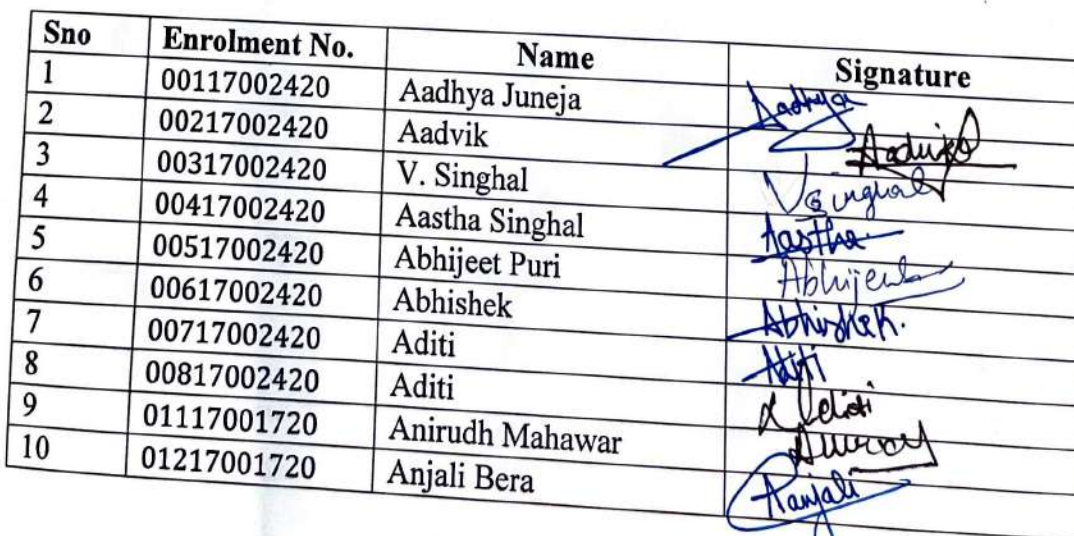 Sno Enrolment No. Name Signature
1 00117002420 Aadhya Juneja Aadhya
2 00217002420 Aadvik Aadvik
3 00317002420 V. Singhal VSinghal
4 00417002420 Aastha Singhal Aastha
5 00517002420 Abhijeet Puri Abhijeet
6 00617002420 Abhishek Abhishek.
7 00717002420 Aditi Aditi
8 00817002420 Aditi
9 01117001720 Anirudh Mahawar
10 01217001720 Anjali Bera Aanjali